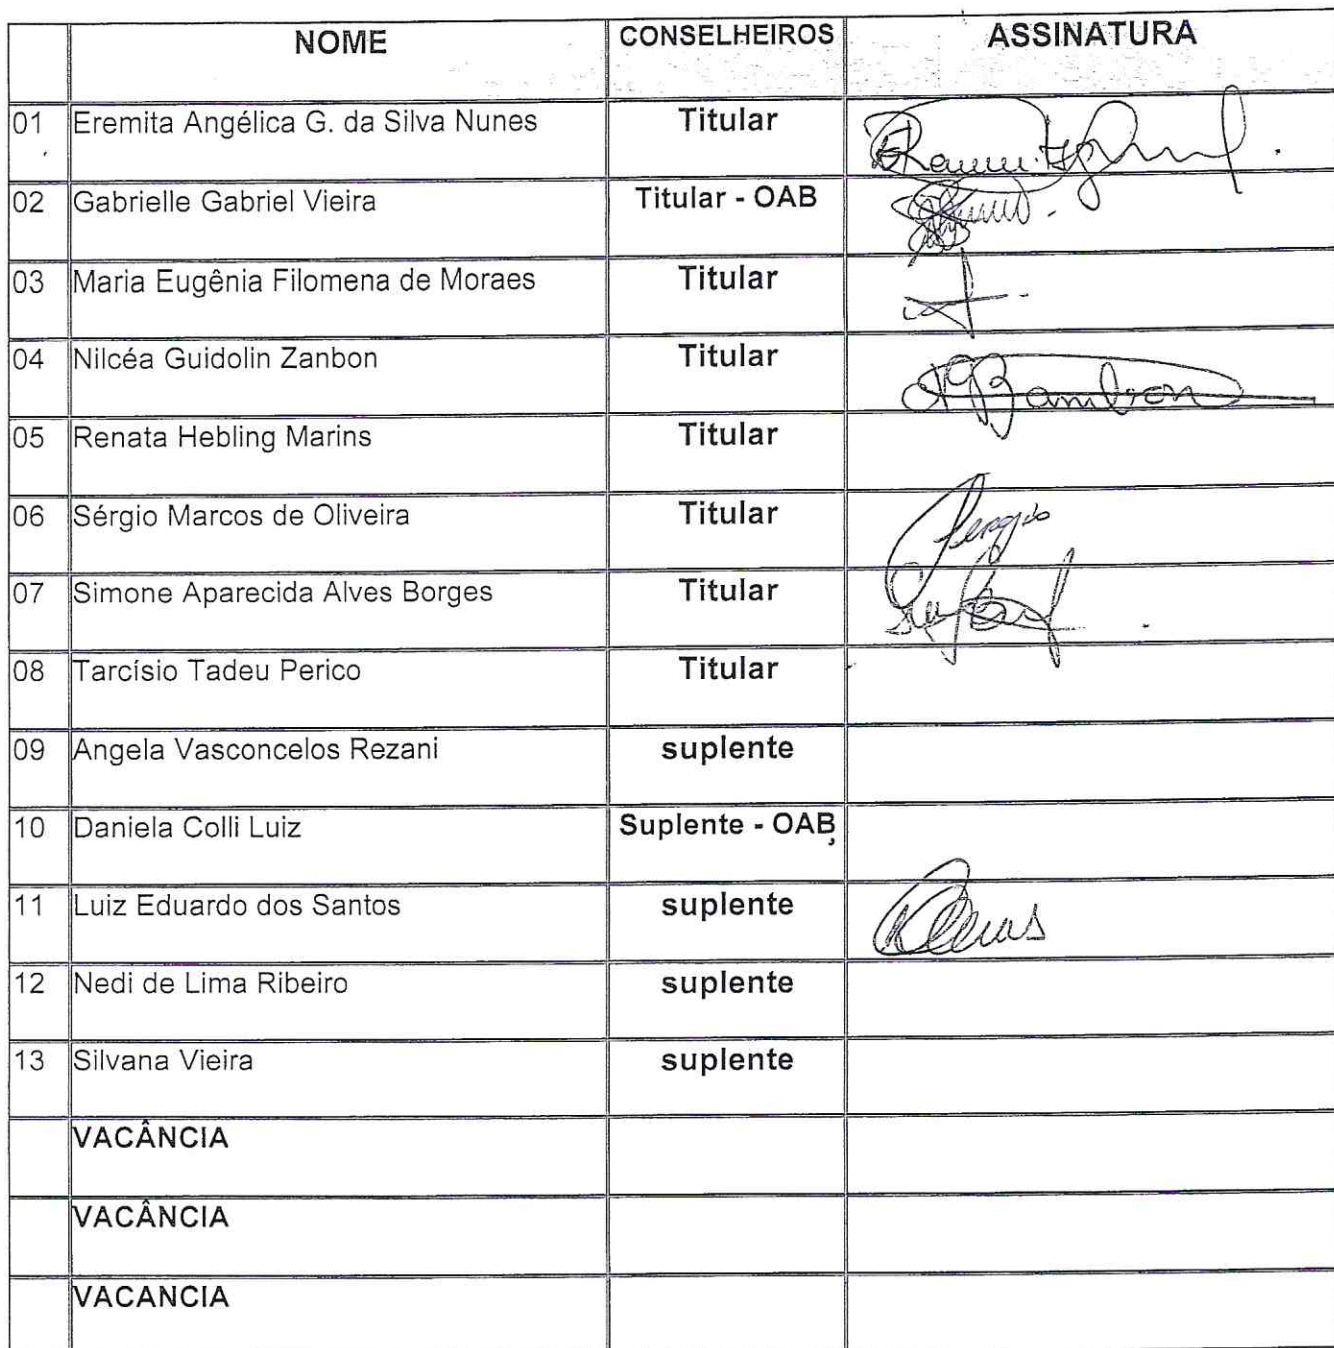 NOME CONSELHEIROS ASSINATURA
01 Eremita Angélica G. da Silva Nunes Titular
02 Gabrielle Gabriel Vieira Titular - OAB
03 Maria Eugênia Filomena de Moraes Titular
04 Nilcéa Guidolin Zanbon Titular NGZambon
05 Renata Hebling Marins Titular
06 Sérgio Marcos de Oliveira Titular Sergio
07 Simone Aparecida Alves Borges Titular
08 Tarcísio Tadeu Perico Titular
09 Angela Vasconcelos Rezani suplente
10 Daniela Colli Luiz Suplente - OAB
11 Luiz Eduardo dos Santos suplente
12 Nedi de Lima Ribeiro suplente
13 Silvana Vieira suplente
VACÂNCIA
VACÂNCIA
VACANCIA